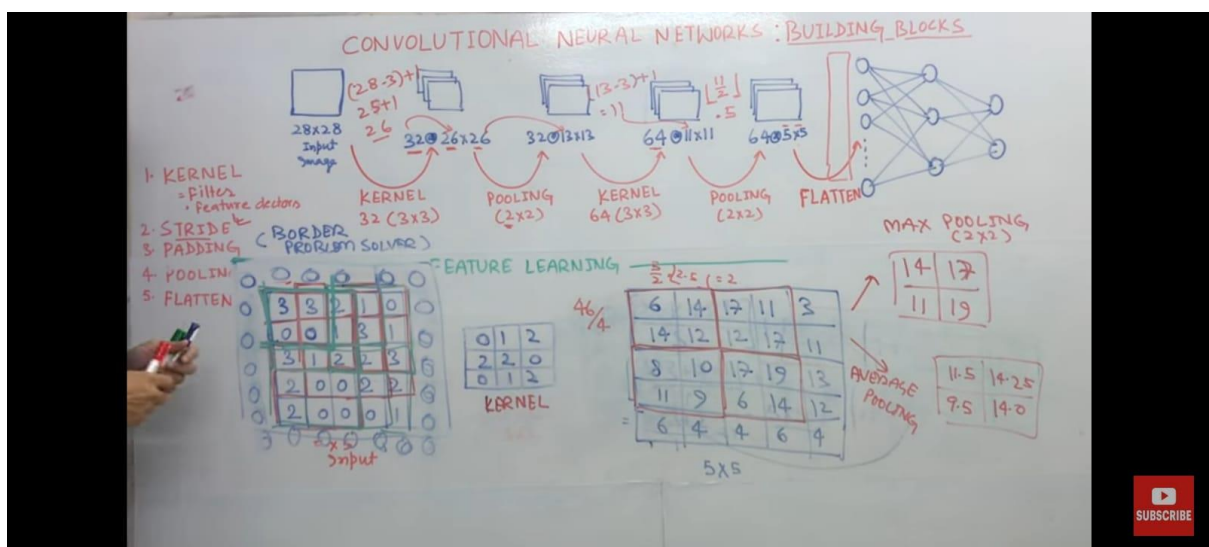 CONVOLUTIONAL NEURAL NETWORKS : BUILDING BLOCKS
28x28
Input
Image
(28-3)+1
25+1
26
32@26x26
32@13x13
(13-3)+1
=11
64@11x11
⌊11/2⌋
.5
64@5x5
KERNEL
32 (3x3)
POOLING
(2x2)
KERNEL
64 (3x3)
POOLING
(2x2)
FLATTEN
1. KERNEL
= Filter
• Feature dectors
2. STRIDE
3. PADDING
(BORDER
PROBLEM SOLVER)
4. POOLIN
5. FLATTEN
FEATURE LEARNING
0 0 0 0 0 0
0 3 3 2 1 0 0
0 0 0 3 1 0
0 3 1 2 2 3 0
0 2 0 0 2 2 0
0 2 0 0 0 1 0
Input
0 1 2
2 2 0
0 1 2
KERNEL
46/4
5/2 (2.5 (=2
6 14 17 11 3
14 12 12 17 11
8 10 17 19 13
11 9 6 14 12
= 6 4 4 6 4
5x5
MAX POOLING
(2x2)
14 17
11 19
AVERAGE
POOLING
11.5 14.25
9.5 14.0
SUBSCRIBE